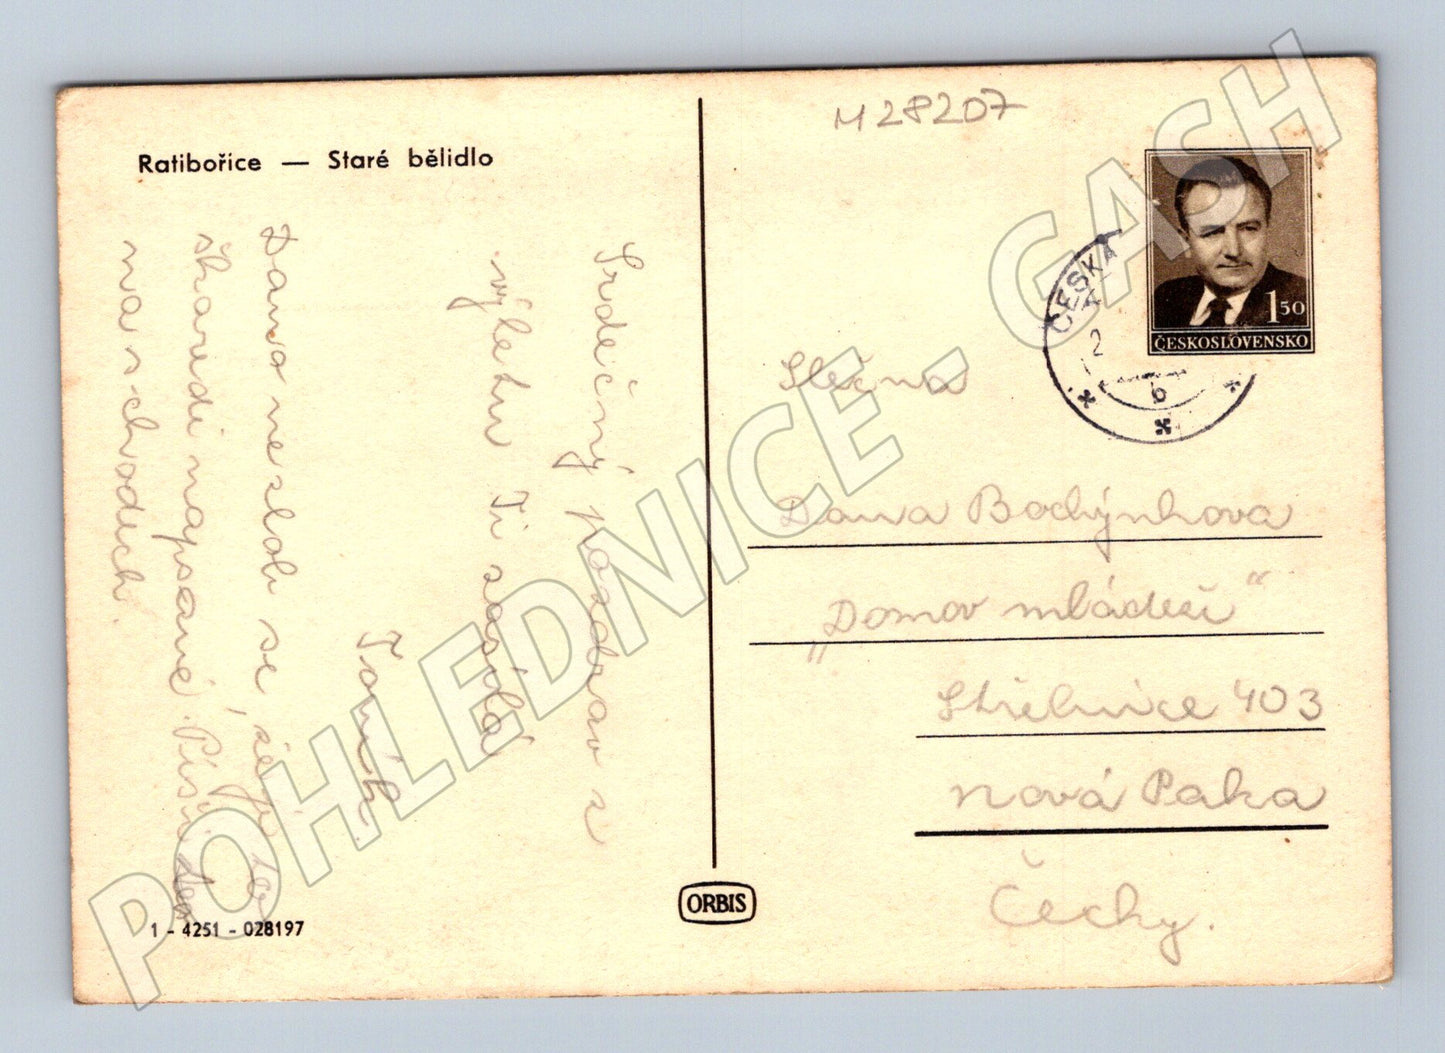 M 28207
Ratibořice — Staré bělidlo
Srdečný pozdrav z
výletu Ti zasílá
Dana nezlob se, že je to
škaredě napsané. Píši to
na schodech.
1 - 4251 - 028197
ORBIS
ČESKÁ
2
b
1 50
ČESKOSLOVENSKO
Slečna
Dana
„Domov mládeže“
Střelnice 403
Nová Paka
Čechy.
POHLEDNICE - GASH